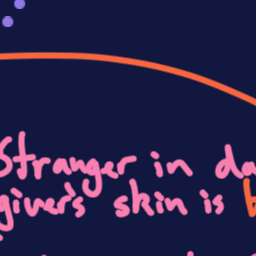 Stranger in da
giver's skin is b